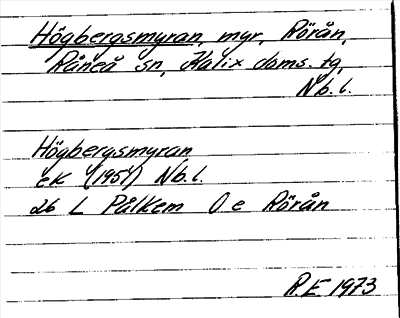 Högbergsmyran, myr, Rörån,
Råneå sn, Kalix doms. tg,
Nb. l.
Högbergsmyran
ek (1951) Nb. l.
26 L Pålkem 0 e Rörån
R.E 1973